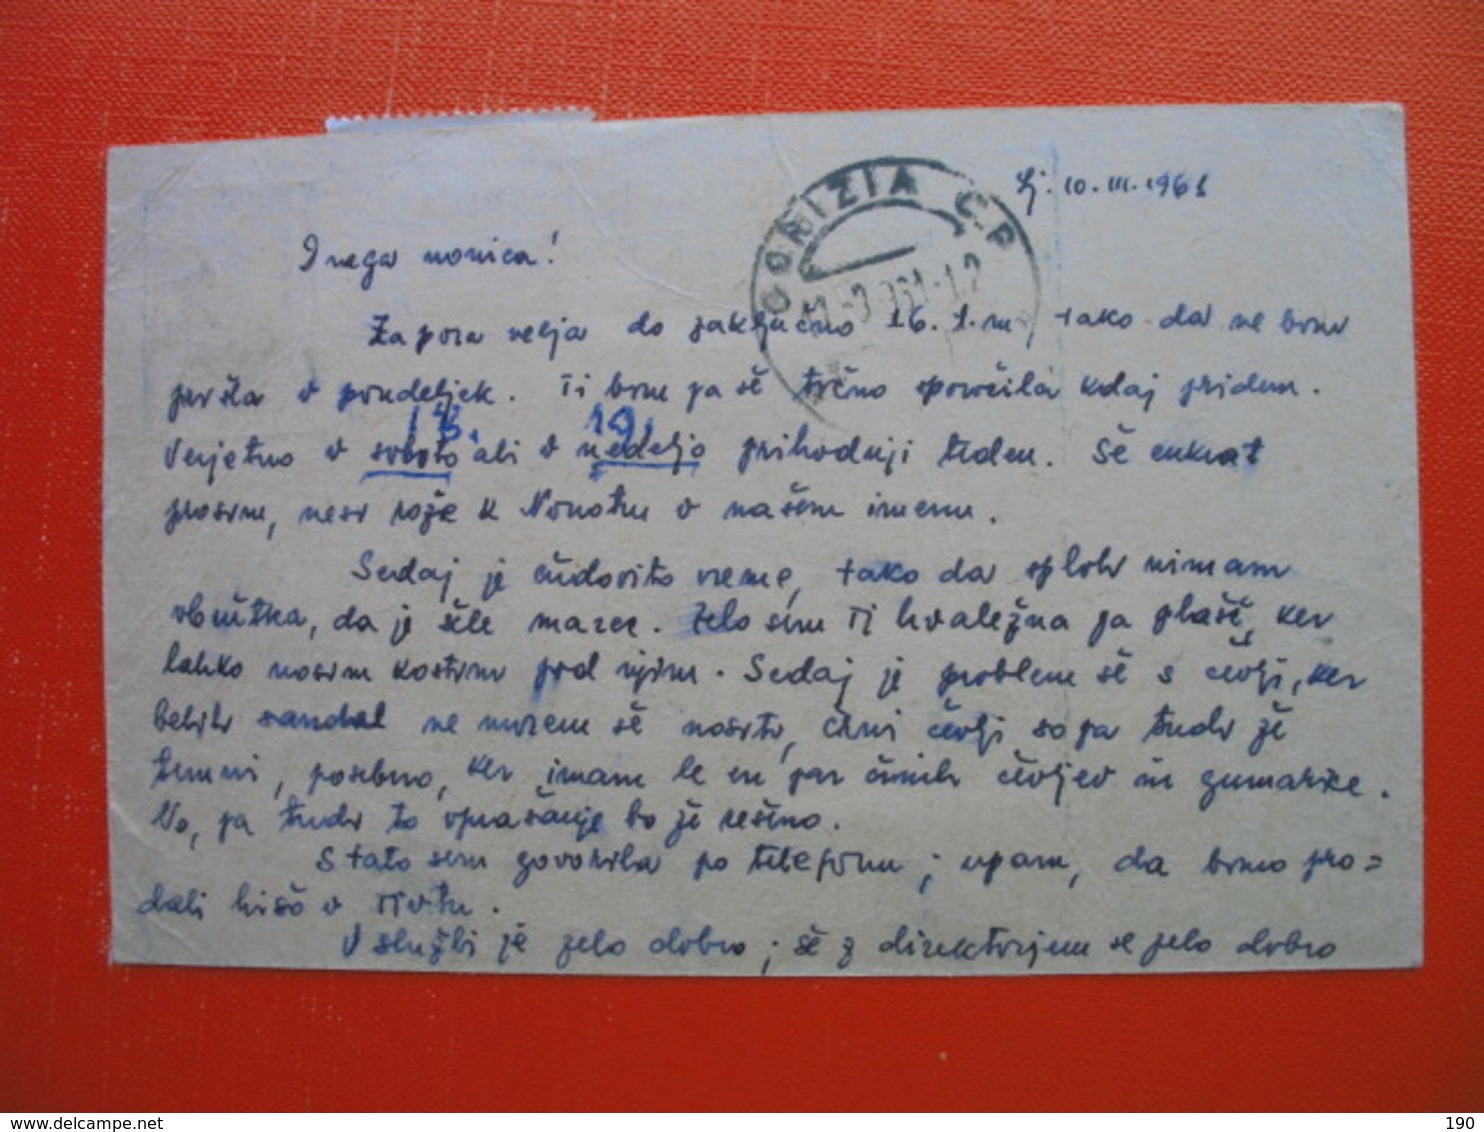 Lj. 10. III. 1961
GORIZIA C.P
-3 1961-12
Draga nonica!
Zapora velja do zaključno 16. t. m., tako da ne bom
prišla v pondeljek. Ti bom pa še točno sporočila kdaj pridem.
18. 19.
Verjetno v soboto ali v nedeljo prihodnji teden. Še enkrat
prosim, nesi rože k Nonotu v našem imenu.
Sedaj je čudovito vreme, tako da sploh nimam
občutka, da je šele marec. Zelo sem Ti hvaležna za plašč, ker
lahko nosim kostim pod njim. Sedaj je problem še s čevlji, ker
belih sandal ne morem še nositi, črni čevlji so pa tudi že
temni, posebno, ker imam le en par črnih čevljev in gumarice.
No, pa tudi to vprašanje bo že rešeno.
S tato sem govorila po telefonu; upam, da bomo pro=
dali hišo v
V službi je zelo dobro; še z direktorjem se zelo dobro
delcampe.net
190